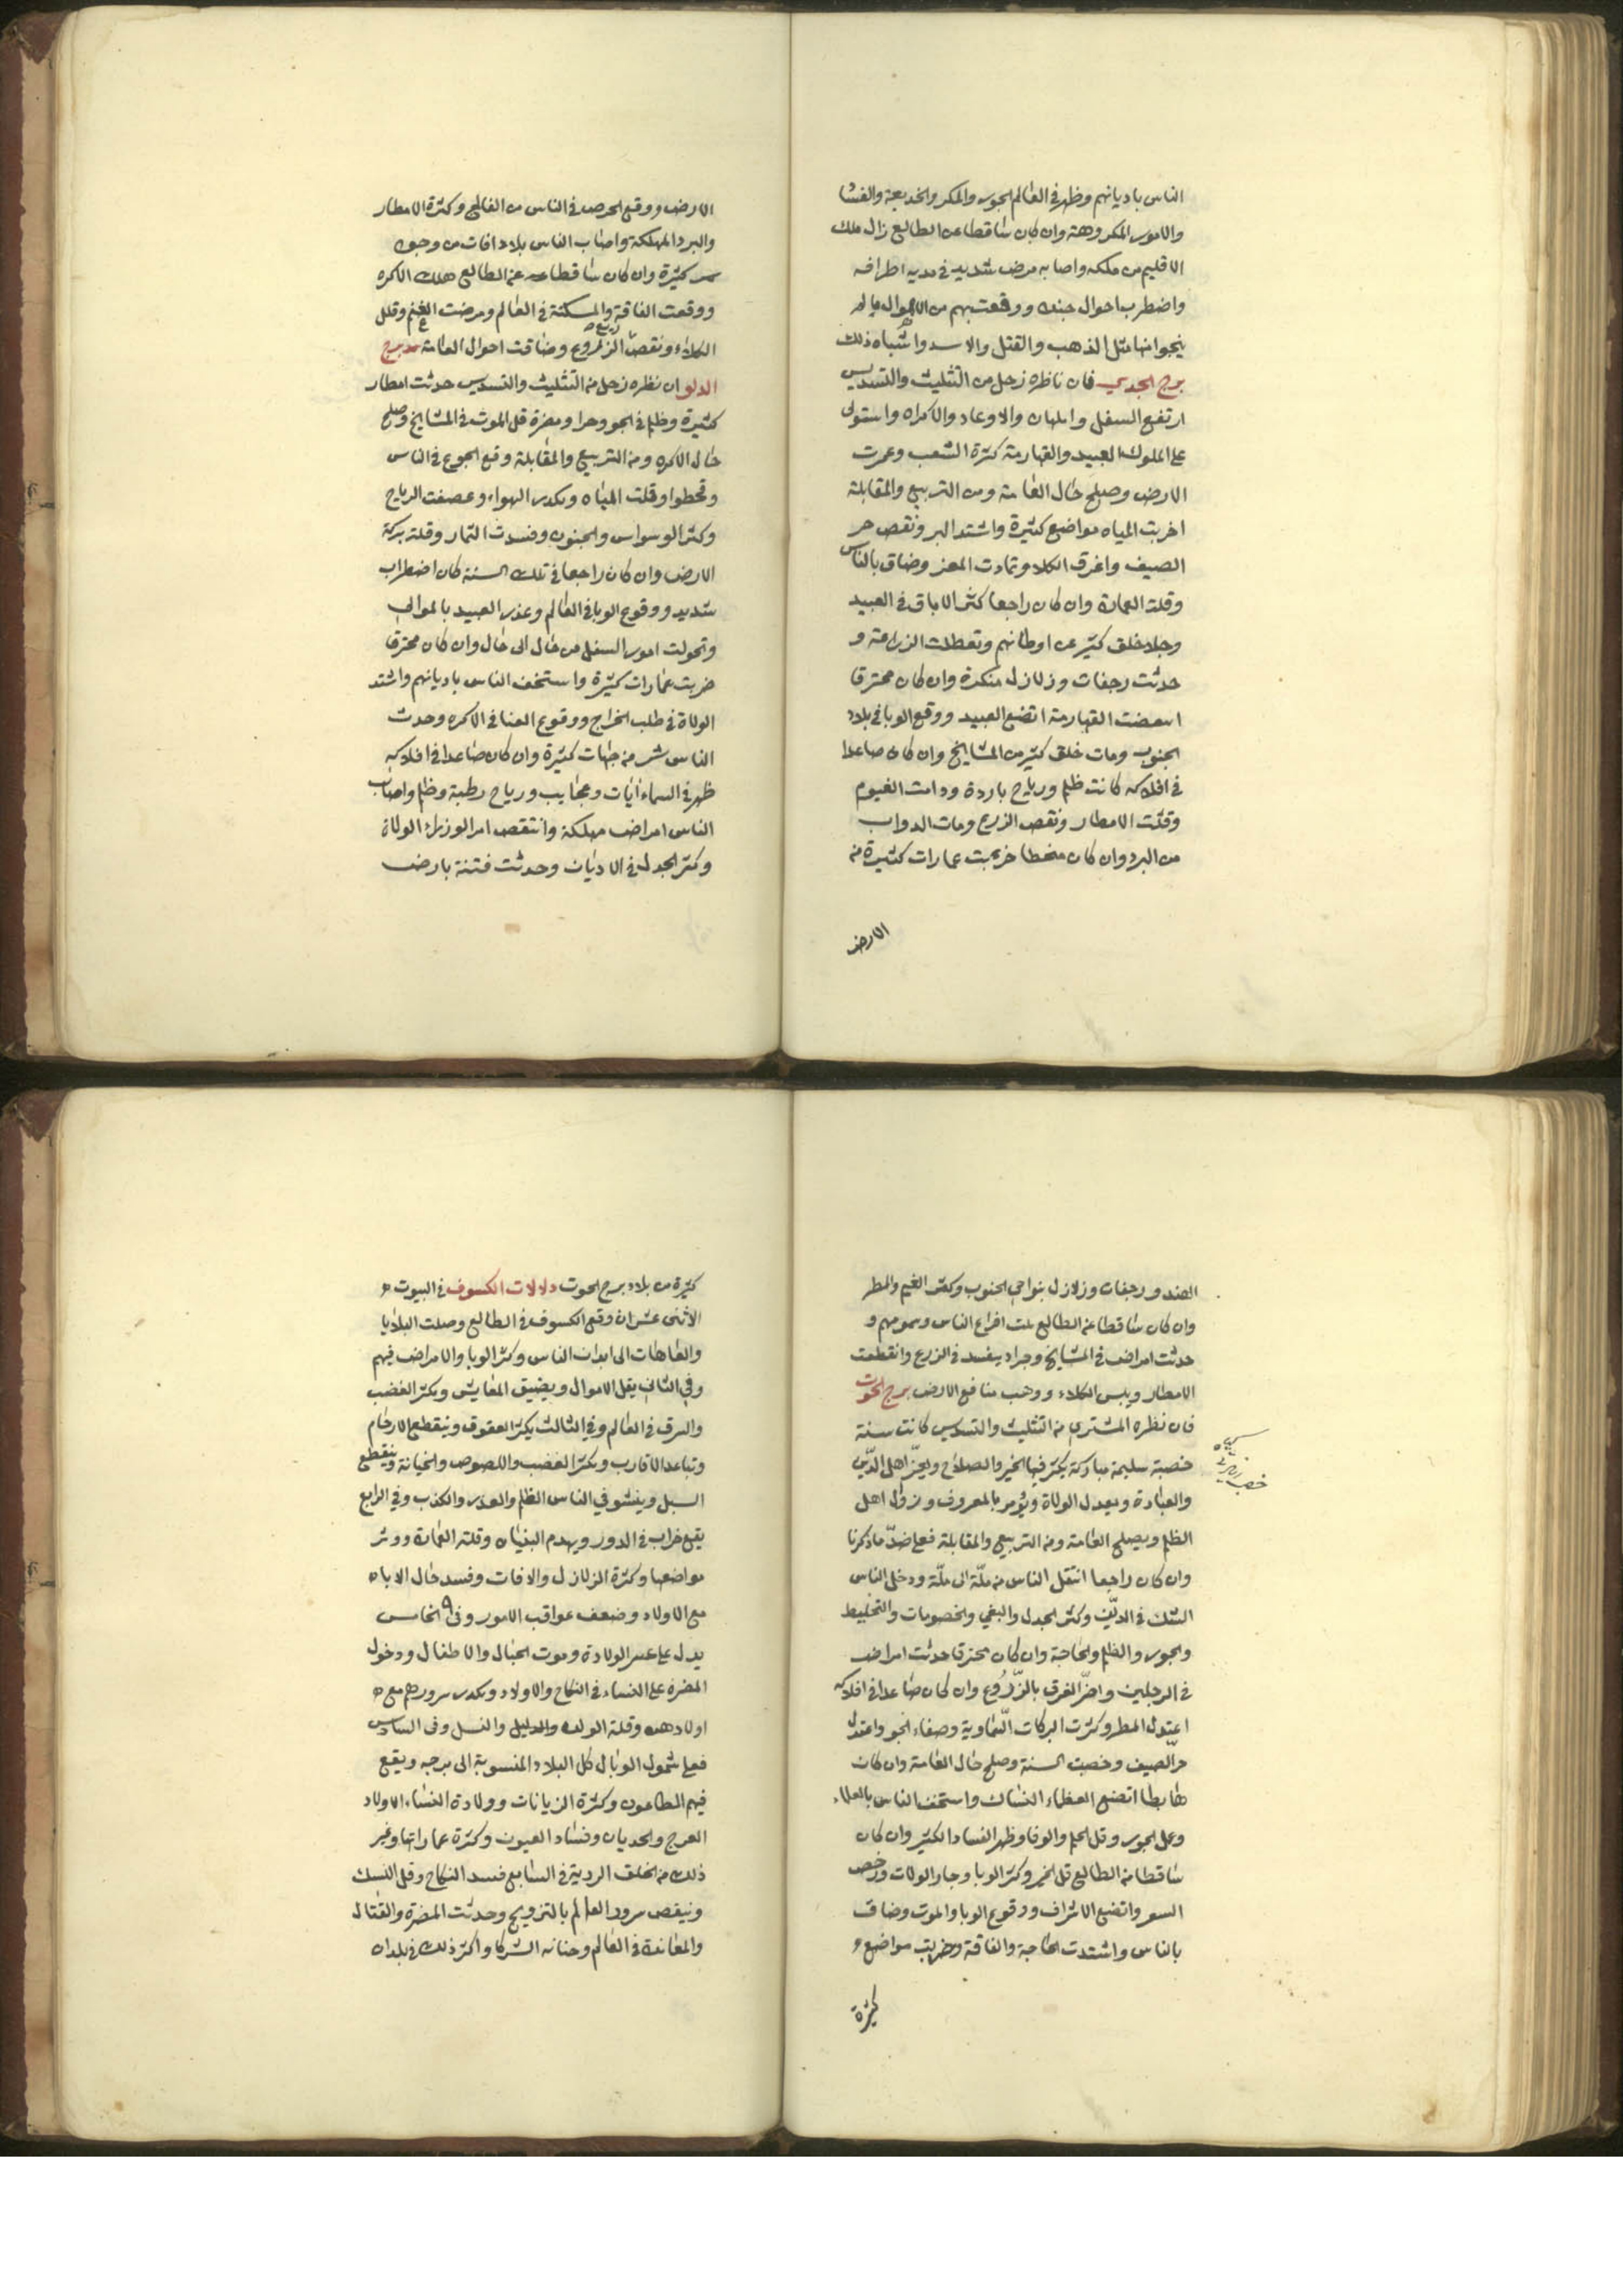 الناس باديانهم وظهر في العالم الجور والمكر والخديعة والغشا
والامور المكروهة وان كان ساقطا عن الطالع زال ملك
الاقليم من ملكه واصابه مرض شديد في مدينه اطرافه
واضطرب احوال جنده ووقعت بهم من الاهوال ما لم
ينجوا منها مثل الذهب والقتل والاسر واشباه ذلك
برج الجدي فان ناظره زحل من التثليث والتسديس
ارتفع السفل والاوغاد والاكراه واستولى
على الملوك العبيد والقهارمة كثرة الشعب وعمرت
الارض وصلح حال العامة ومن التربيع والمقابلة
اخربت المياه مواضع كثيرة واشتد البر ونقص حر
الصيف واغرق الكلا وتماوت المعز وضاق بالناس
وقلة العمارة وان كان راجعا كثر الاباق في العبيد
وجلا خلق كثير عن اوطانهم وتعطلت الزراعة و
حدثت رجفات وزلازل منكرة وان كان محترقا
القهارمة اتضع العبيد ووقع الوبا في بلاد
الجنوب ومات خلق كثير من المشايخ وان كان صاعدا
في افلاكه كانت ظلم ورياح باردة ودامت الغيوم
وقلت الامطار ونقص الزرع ومات الدواب
من البرد وان كان منحطا خربت عمارات كثيرة من
الارض
الارض ووقع الحرص في الناس من الفالج وكثرة الامطار
والبرد المهلكة واصاب الناس بلاد افات من وجوه
كثيرة وان كان ساقطا عن الطالع هلك الاكره
ووقعت الفاقة والمسكنة في العالم ومرضت الغنم وقلل
الكلاء ونقصت الزروع وضاقت احوال العامة برج
الدلو ان نظره زحل من التثليث والتسديس حدثت امطار
كثيرة وظلم في الجو وحرا ومضرة قل الموت في المشايخ وصلح
حال الاكره ومن التربيع والمقابلة وقع الجوع في الناس
وقحطوا وقلت المياه وتكدر الهواء وعصفت الرياح
وكثر الوسواس والجنون وفسدت الثمار وقلة بركة
الارض وان كان راجعا في تلك السنة كان اضطراب
شديد ووقوع الوبا في العالم وغدر العبيد بالموالي
وتحولت امور السفل من حال الى حال وان كان محترقا
خربت عمارات كثيرة واستخف الناس باديانهم واشتد
الولاة في طلب الخراج ووقوع العنا في الاكره وحدث
الناس شر من جهات كثيرة وان كان صاعدا في افلاكه
ظهر في السماء أيات وعجايب ورياح رطبة وظلم واصاب
الناس امراض مهلكة وانتقص امر الوزراء الولاة
وكثر الجدل في الاديان وحدثت فتنة بارض
الصند ورجفات وزلازل بنواحي الجنوب وكثر الغيم والمطر
وان كان ساقطا عن الطالع افراع الناس وهمومهم و
حدثت امراض في المشايخ وجراد يفسد في الزرع وانقطعت
الامطار ويبس الكلاء ووهب منافع الارض برج الحوت
فان نظره المشتري من التثليث والتسديس كانت سنة
خصبة سليمة مباركة يكثر فيها الخير والصلاح ويعزّ اهل الدّين
والعبادة ويعدل الولاة ويؤمر بالمعروف وزوال اهل
الظلم ويصلح العامة ومن التربيع والمقابلة فعلى ضدّ ما ذكرنا
وان كان راجعا انتقل الناس من ملّة الى ملّة ودخل الناس
الشك في الدّين وكثر الجدل والبغي والخصومات والتخليط
والجور والظلم والحاجة وان كان محترقا حدثت امراض
في الرجلين واضرّ الغرق بالزّروع وان كان صاعدا في افلاكه
اعتدل المطر وكثرت البركات السّماوية وصفاء الجو واعتدل
حرّ الصيف وخصبت السنة وصلح حال العامة وان كان
هابطا اتضع العظماء النساك واستخف الناس بالعلماء
وعمل الجور وقل الحلم والوفا وظهر الفساد الكثير وان كان
ساقطا من الطالع قل الخير وكثر الوبا وجار الولات ورخص
السعر واتضع الاشراف ووقوع الوبا والموت وضاق
بالناس واشتدت الحاجة والفاقة وخربت مواضع و
كثيرة
كثيرة من بلاد برج الحوت دلالات الكسوف في البيوت
الاثنى عشر ان وقع الكسوف في الطالع وصلت البلايا
والعاهات الى ابدان الناس وكثر الوبا والامراض فيهم
وفي الثاني يقل الاموال ويضيق المعايش ويكثر الغضب
والسرق في العالم وفي الثالث يكثر العقوق وينقطع الارحام
وتباعد الاقارب ويكثر الغضب واللصوص والخيانة وينقطع
السبل ويفشو في الناس الظلم والغدر والكذب وفي الرابع
يقع خراب في الدور ويهدم البنيان وقلة العمارة ودثر
مواضعها وكثرة الزلازل والافات وفسد حال الاباء
مع الاولاد وضعف عواقب الامور وفي الخامس
يدل على عسر الولادة وموت الحبال والاطفال ودخول
المضرة على النساء في النكاح والاولاد وتكدر سرورهم مع
اولادهم وقلة الولد والنسل وفى السادس
فعلى شمول الوبا في كل البلاد المنسوبة الى برجه ويقع
فيهم الطاعون وكثرة الزيانات وولادة النساء الاولاد
العرج والحدبان وفساد العيون وكثرة عماراتها وغير
ذلك من الخلق الردية في السابع فسد النكاح وقل النسك
وينقص سرور العالم بالتزويج وحدثت المضرة والقتال
والمعاندة في العالم وخيانة الشركا واكثر ذلك في بلدان